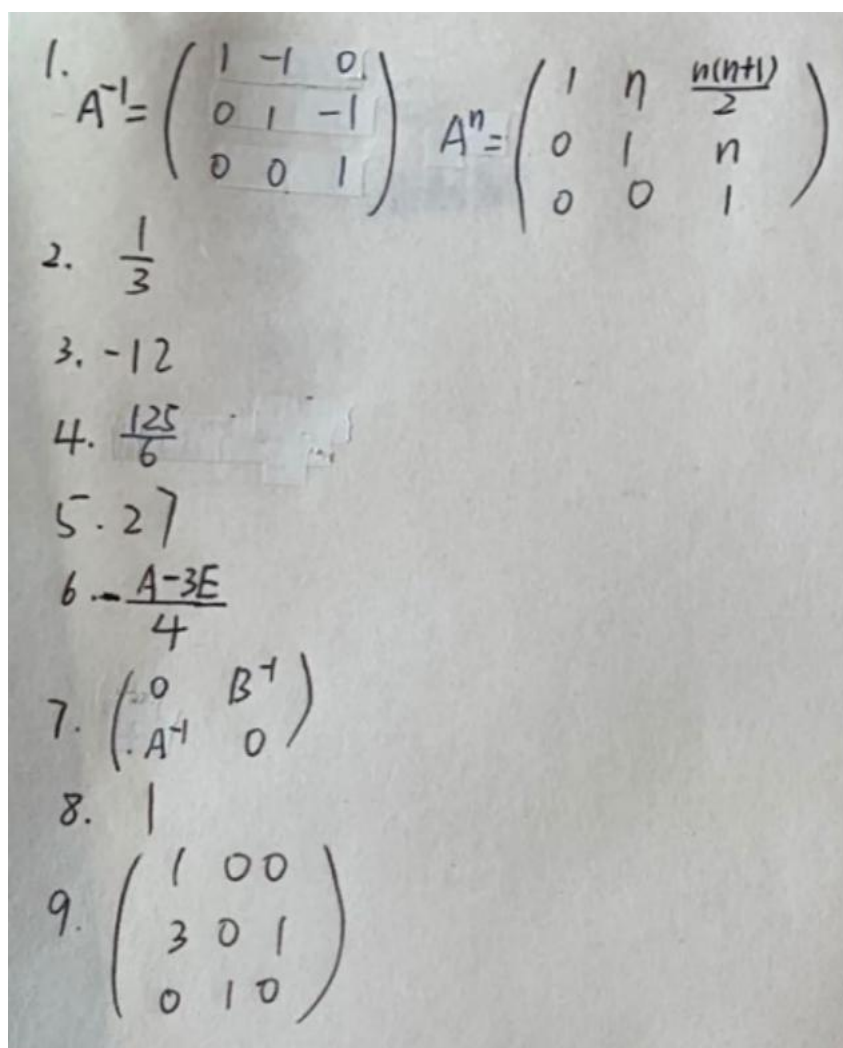 1.
A⁻¹= ( 1 -1 0
0 1 -1
0 0 1 ) Aⁿ= ( 1 n n(n+1)/2
0 1 n
0 0 1 )
2. 1/3
3. -12
4. 125/6
5. 27
6. - A-3E/4
7. ( 0 B⁻¹
A⁻¹ 0 )
8. 1
9. ( 1 0 0
3 0 1
0 1 0 )